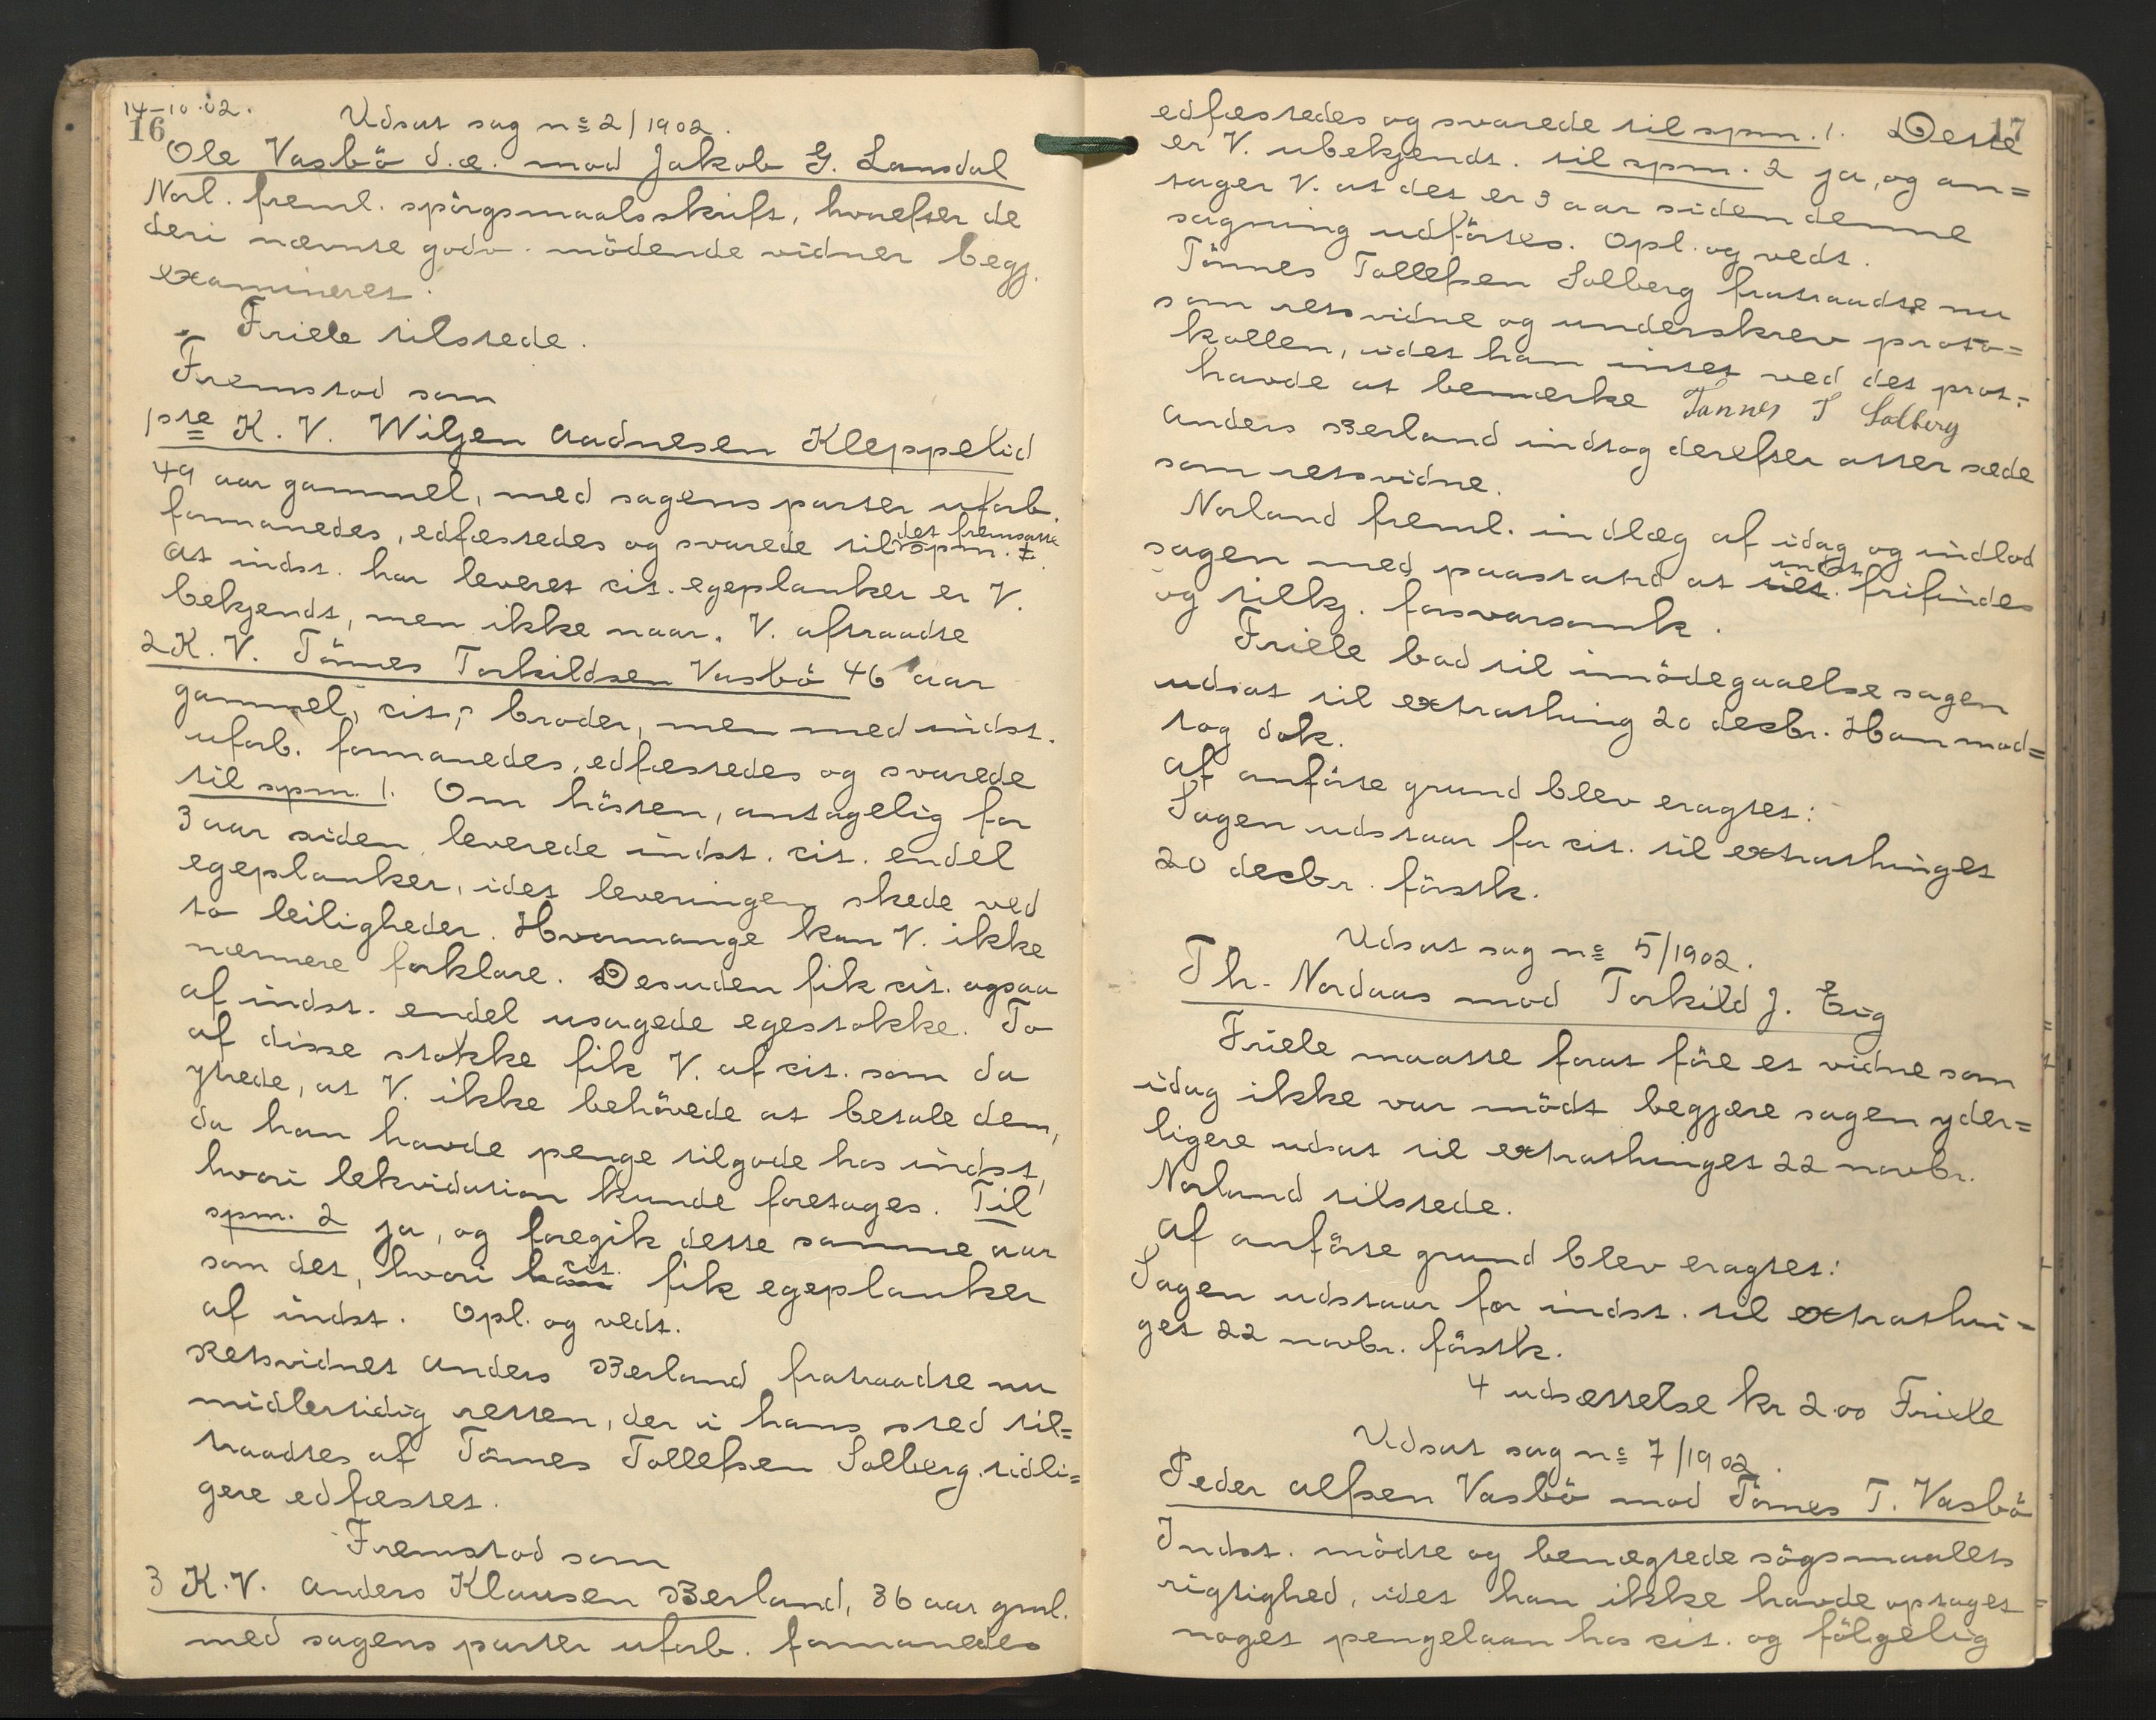 14-10-02.
16
Udsat sag nº 2/1902.
Ole Vasbö d.æ. mod Jakob G. Lansdal
Norl. freml. spörgsmaalsskrift, hvorefter de
deri nævnte godv. mödende vidner begj.
examineret.
Friele tilstede.
Fremstod som
1ste K. V. Wiljen Aadnesen Kleppelid
49 aar gammel, med sagens parter uforb.
formanedes, edfæstedes og svarede til det fremsatte spm. 1.
At indst. har leveret cit. egeplanker er V.
bekjendt, men ikke naar. V. aftraadte
2 K. V. Tönnes Torkildsen Vasbö 46 aar
gammel, cit.s broder, men med indst.
uforb. formanedes, edfæstedes og svarede
til spm. 1. Om hösten, antagelig for
3 aar siden leverede indst. cit. endel
egeplanker, idet leveringen skede ved
to leiligheder. Hvormange kan V. ikke
nærmere forklare. Desuden fik cit. ogsaa
af indst. endel usagede egestokke. To
af disse stokke fik V. af cit. som da
ytrede, at V. ikke behövede at betale dem,
da han havde penge tilgode hos indst,
hvori lekvidation kunde foretages. Til
spm. 2 ja, og foregik dette samme aar
som det, hvori han cit. fik egeplanker
af indst. Opl. og vedt.
Retsvidnet Anders Berland fratraadte nu
midlertidig retten, der i hans sted til=
traadtes af Tönnes Tollefsen Solberg, tidli=
gere edfæstet.
Fremstod som
3 K.V. Anders Klausen Berland, 36 aar gml.
med sagens parter uforb. formanedes
17
edfæstedes og svarede til spm. 1. Dette
er V. ubekjendt. til spm. 2 ja, og an=
tager V. at det er 3 aar siden denne
sagning udförtes. Opl. og vedt.
Tönnes Tollefsen Solberg fratraadte nu
som retsvidne og underskrev proto=
kollen, idet han intet ved det prot.
havde at bemærke Tønnes T Solberg
Anders Berland indtog derefter atter sæde
som retsvidne.
Norland freml. indlæg af idag og indlod
sagen med paastand at indst. frifindes
og tilkj. forsvarsomk.
Friele bad til imödegaaelse sagen
udsat til extrathing 20 decbr. Han mod=
tog dok.
Af anförte grund blev eragtet:
Sagen udstaar for cit. til extrathinget
20 decbr. förstk.
Udsat sag nº 5/1902.
Th. Nordaas mod Torkild J. Eig
Friele maatte forat före et vidne som
idag ikke var mödt begjære sagen yder=
ligere udsat til extrathinget 22 novbr.
Norland tilstede.
Af anförte grund blev eragtet:
Sagen udstaar for indst. til extrathin=
get 22 novbr. förstk.
4 udsættelse kr 2.00 Friele
Udsat sag nº 7/1902.
Peder Alfsen Vasbö mod Tönnes T. Vasbö
Indst. mödte og benægtede sögsmaalets
rigtighed, idet han ikke havde optaget
noget pengelaan hos cit. og fölgelig